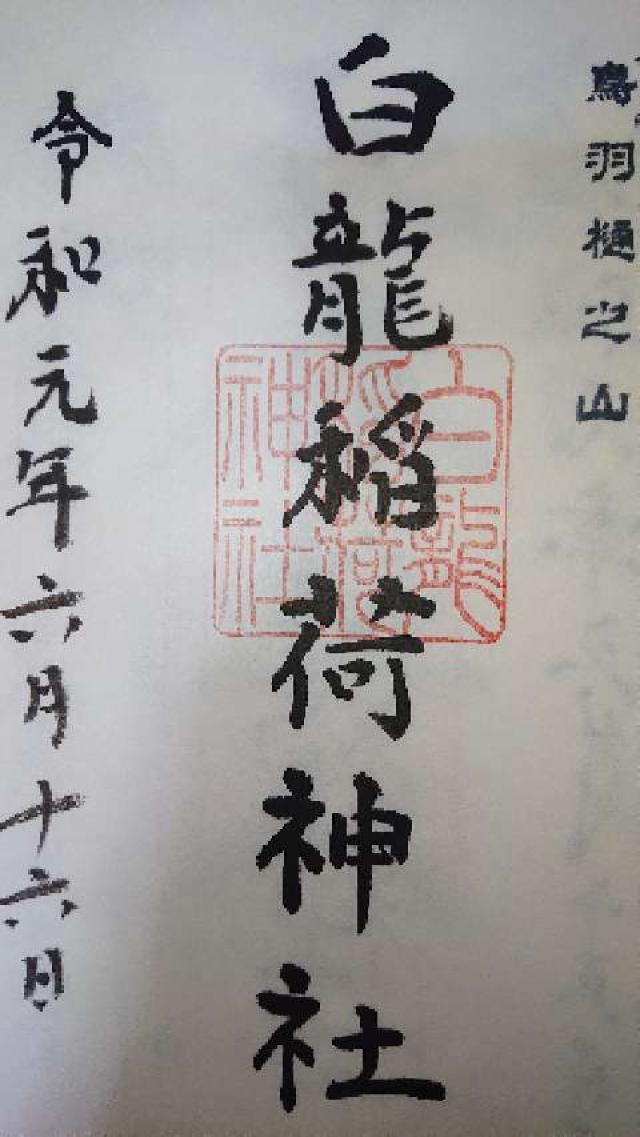 鳥羽樋之山
白龍稲荷神社
白龍
稲荷
神社
令和元年六月十六日